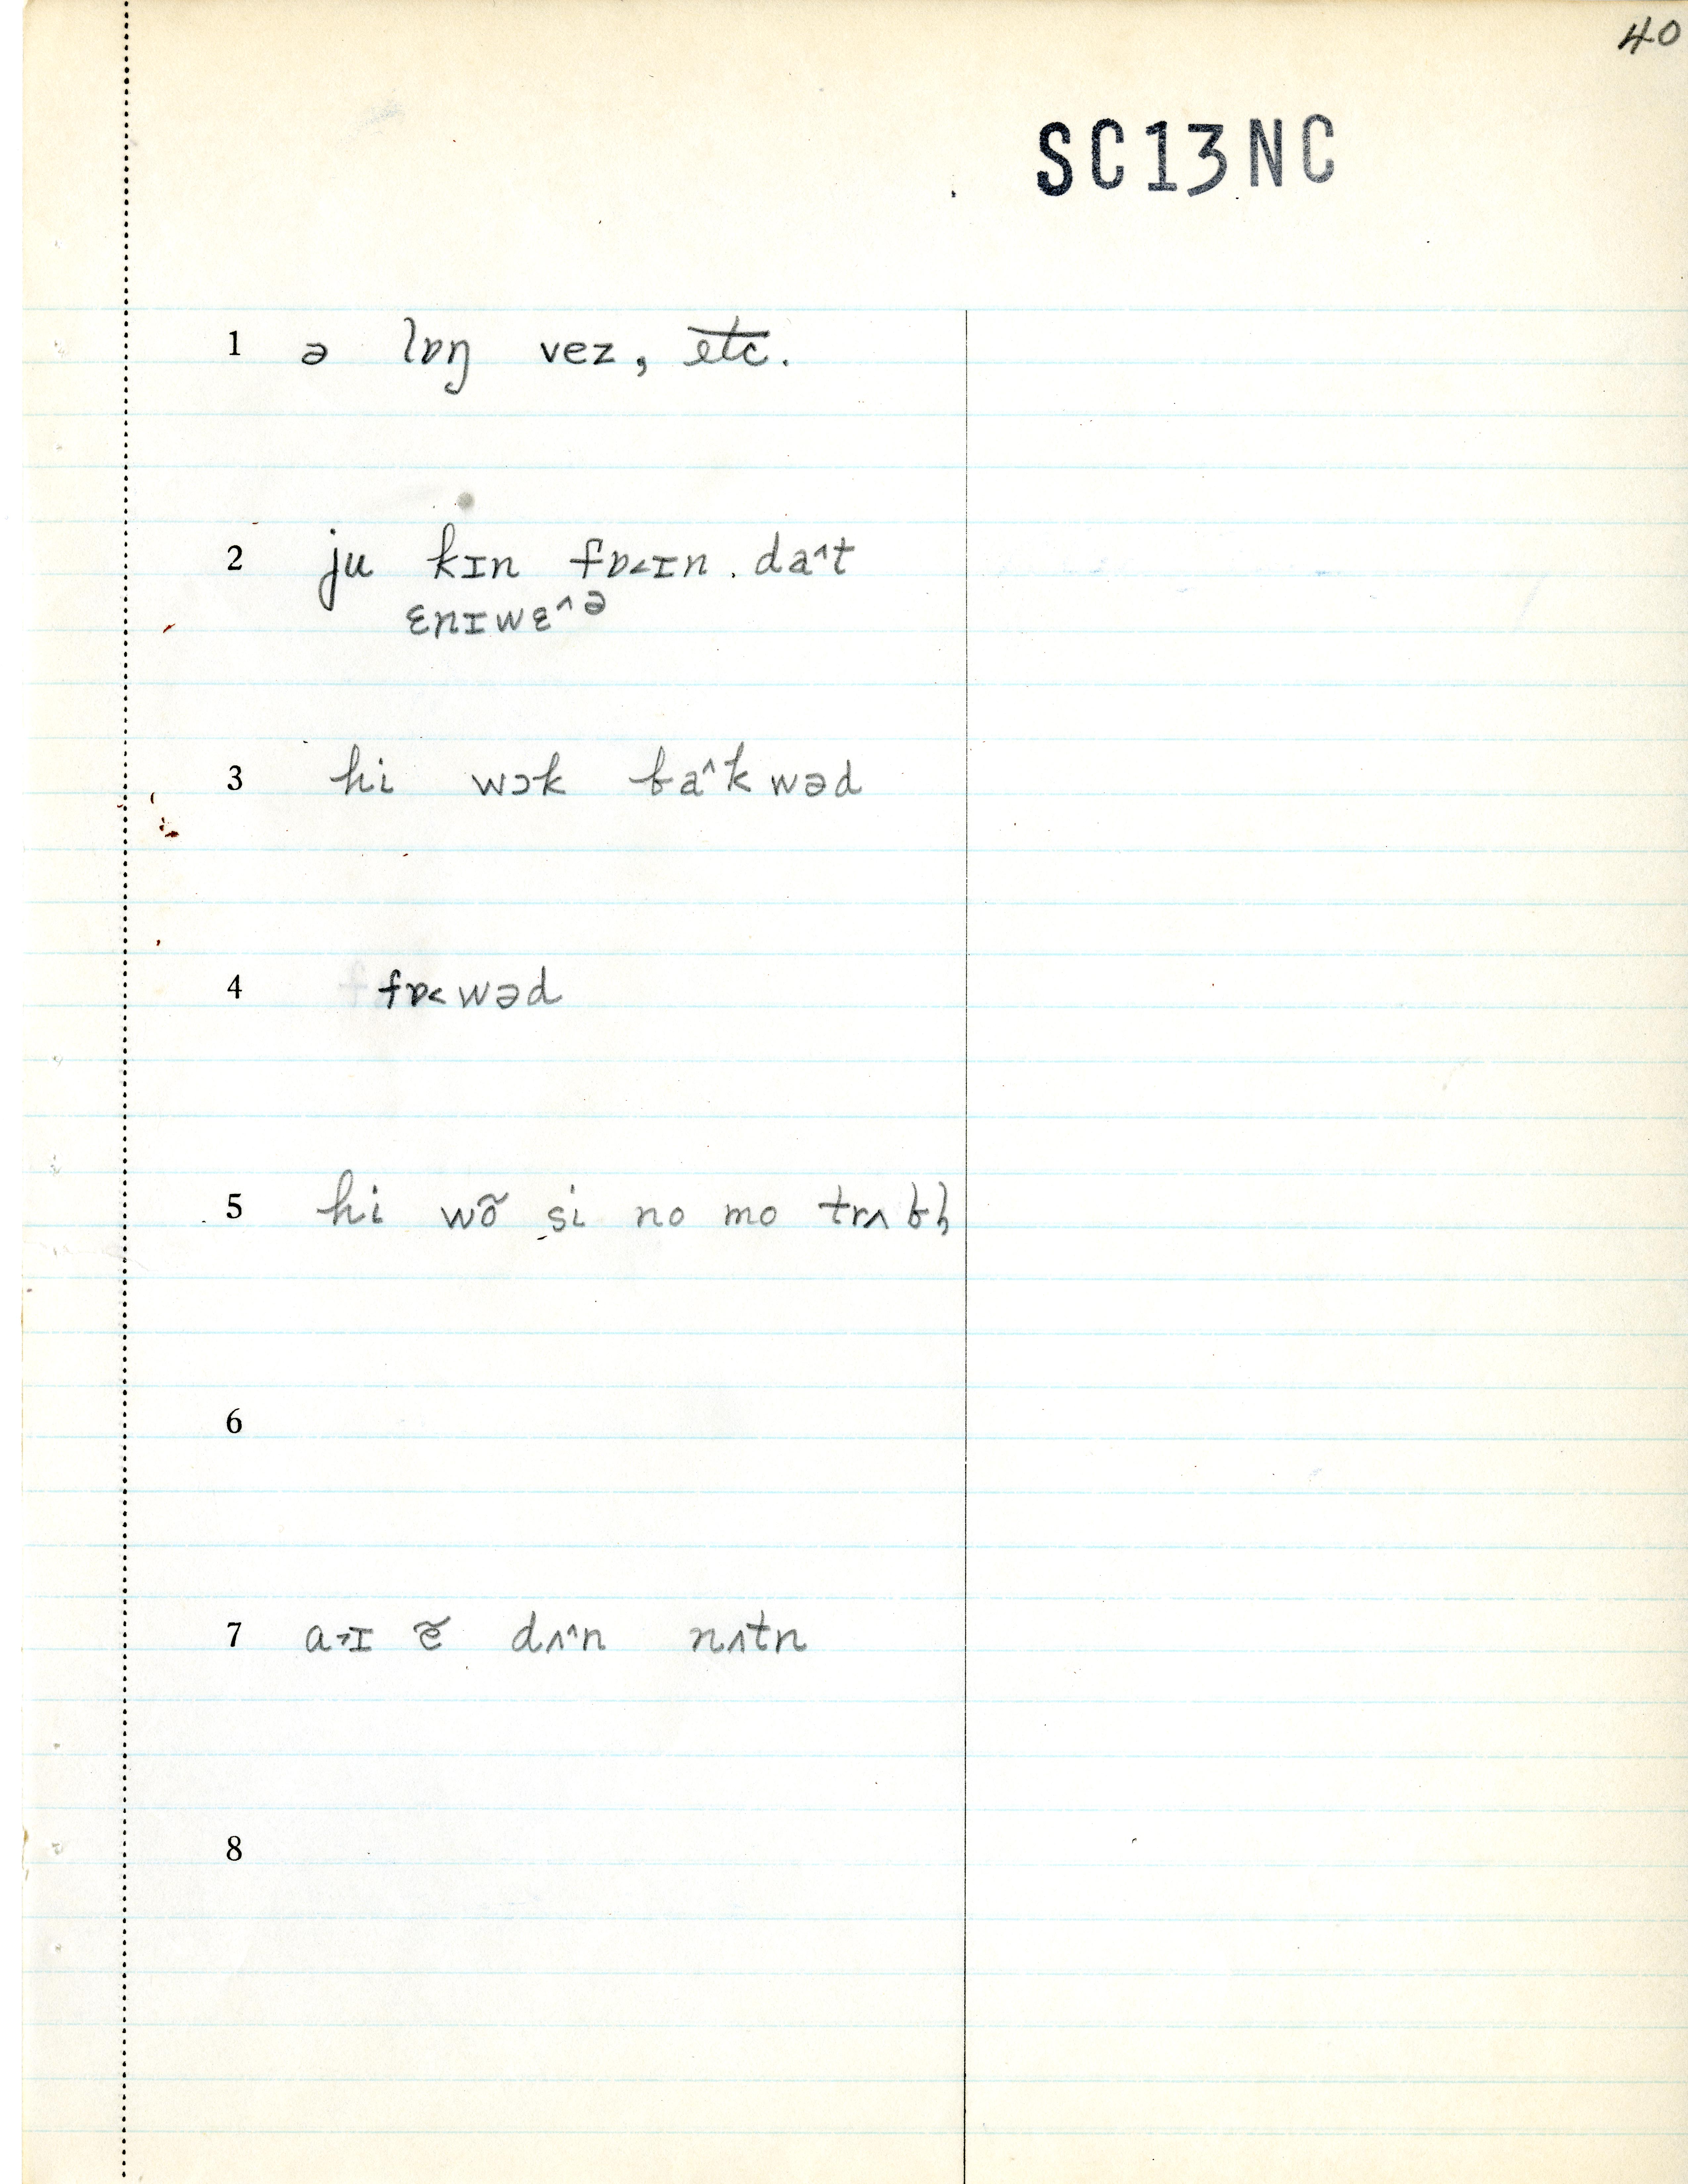 40
SC13NC
1 ə lɒŋ vez, etc.
2 ju kɪn fɒ˂ɪn da^t
ɛnɪwɛ^ə
3 hi wɔk ba^kwəd
4 fɒ˂wəd
5 hi wõ si no mo trʌbl̩
6
7 a˃ɪ ẽ dʌ^n nʌtn
8